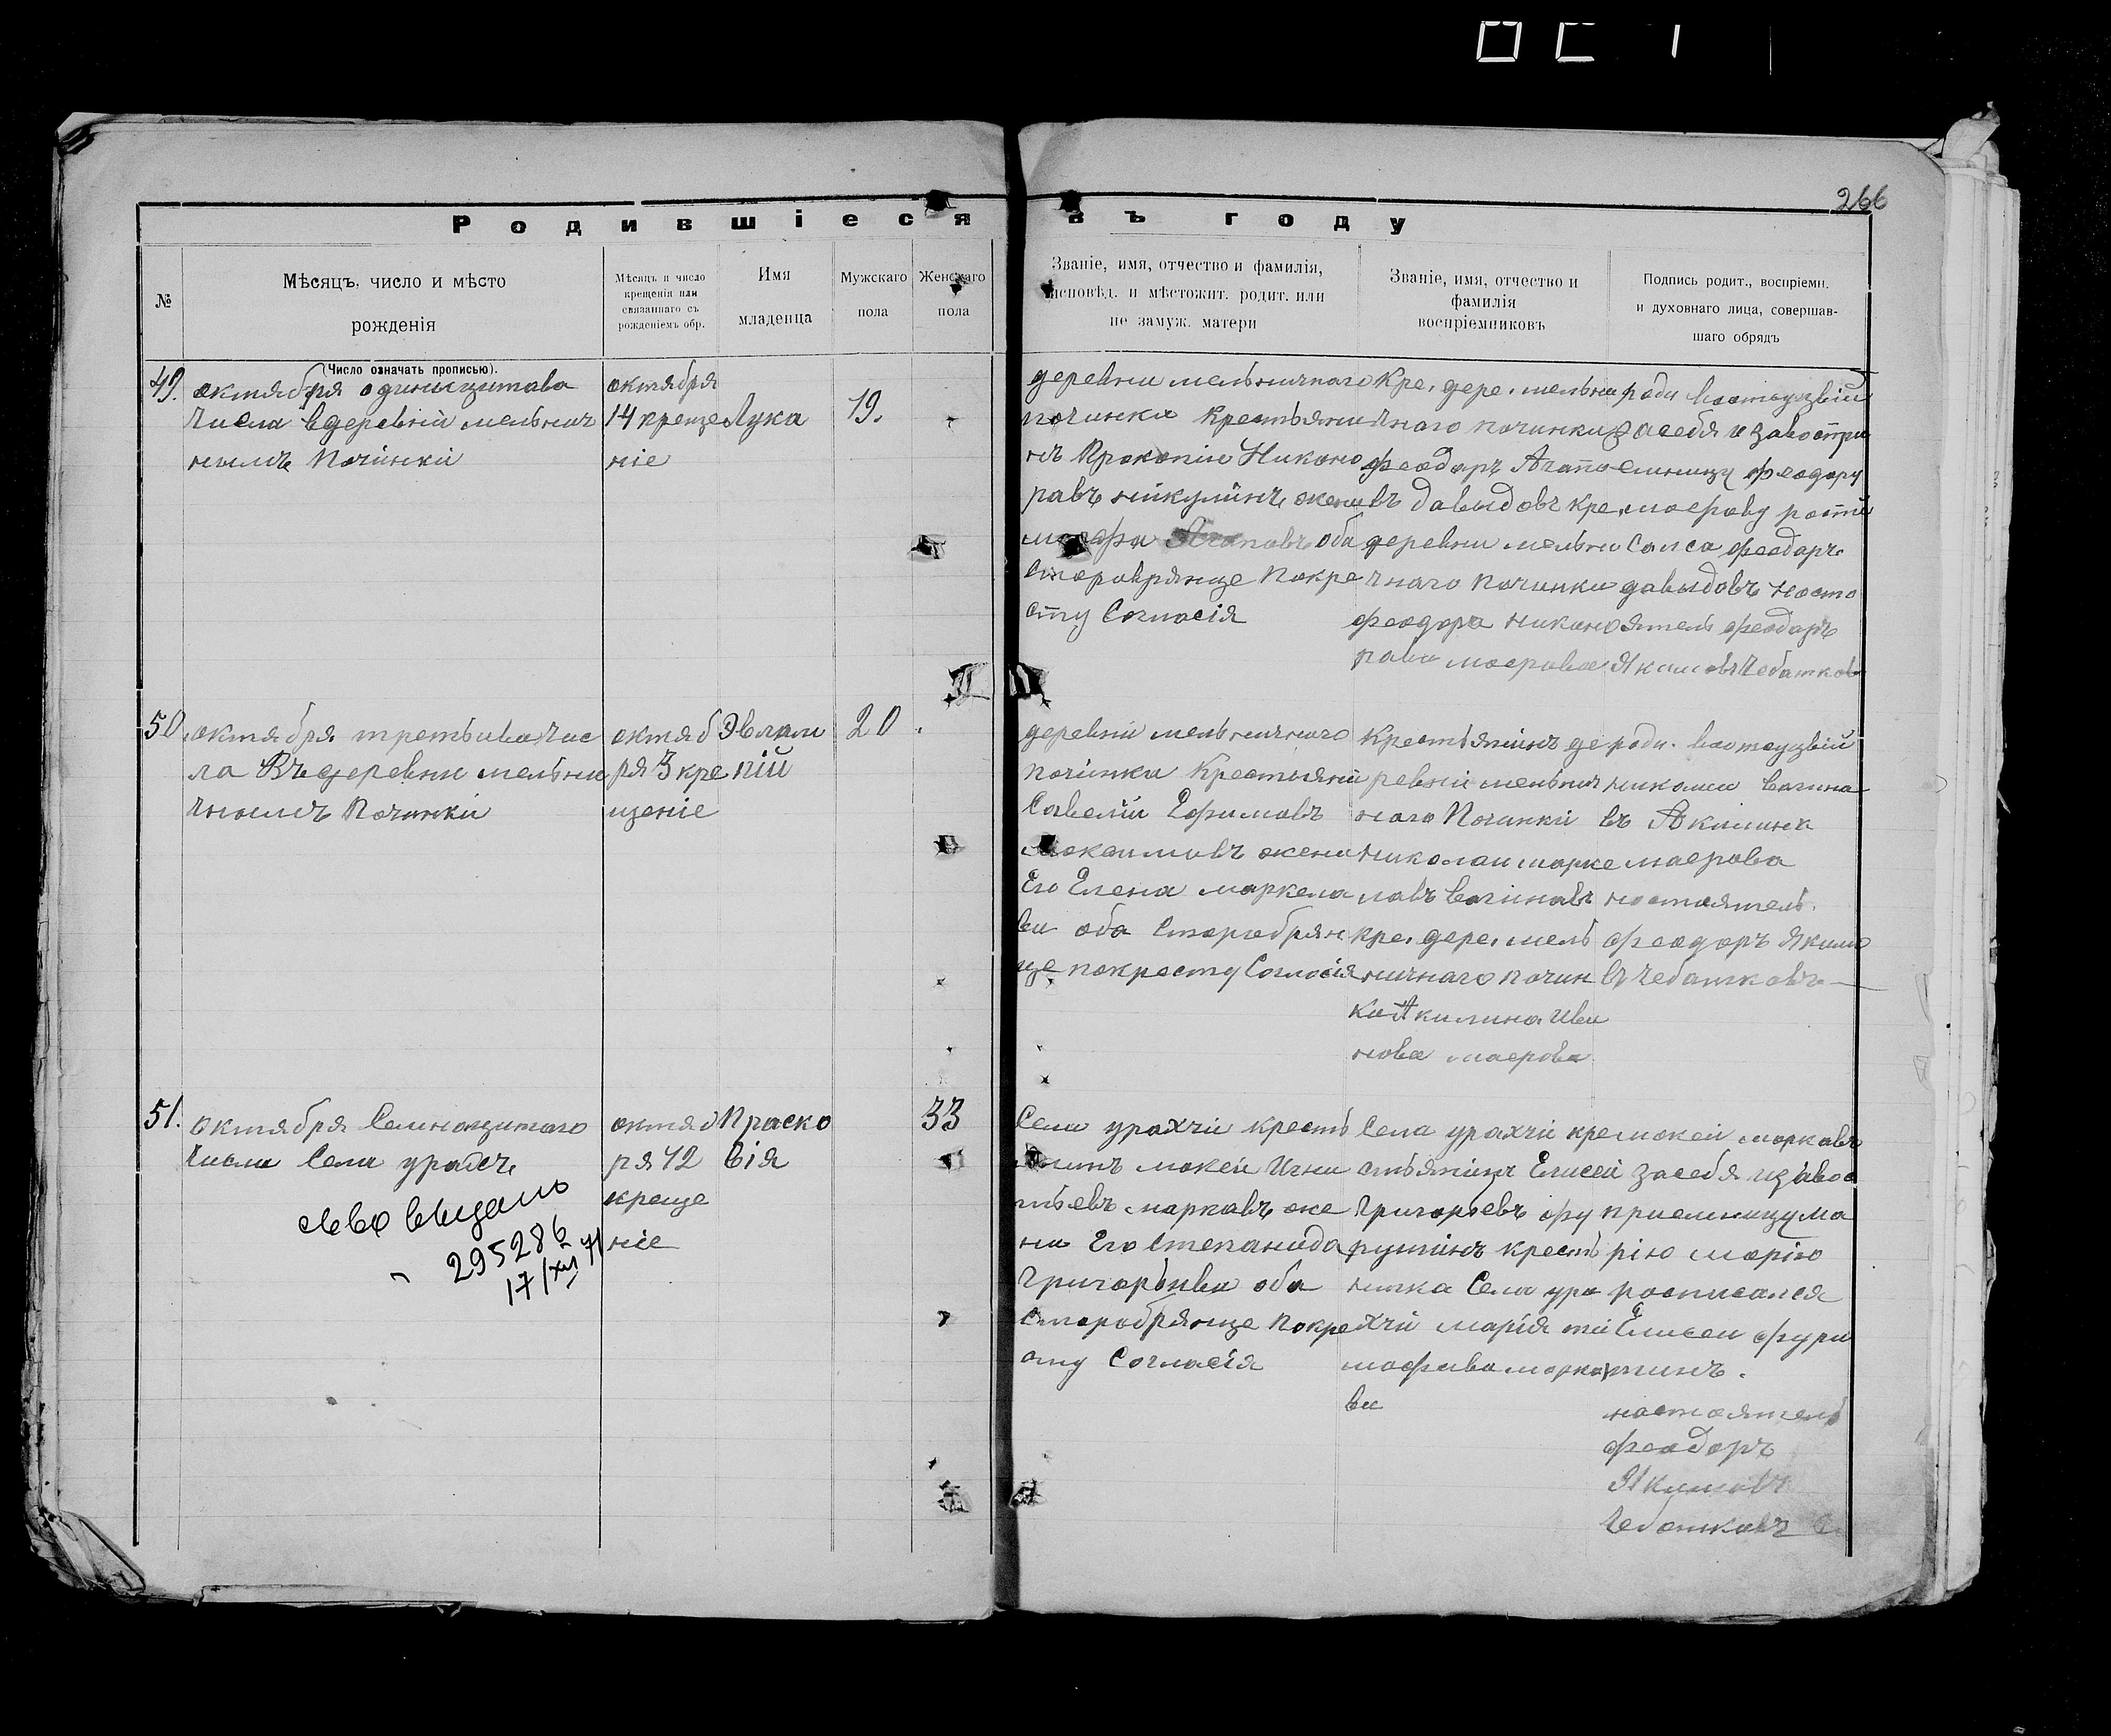 266
Родившіеся въ году
№
Мѣсяцъ, число и мѣсто
рожденія
Мѣсяцъ и число
крещенія или
связаннаго съ
рожденіемъ обр.
Имя
младенца
Мужскаго
пола
Женскаго
пола
Званіе, имя, отчество и фамилія,
исповѣд. и мѣстожит. родит. или
не замуж. матери
Званіе, имя, отчество и
фамилія
воспріемниковъ
Подпись родит., воспріемн.
и духовнаго лица, совершав-
шаго обрядъ
(Число означать прописью).
49.
октября одинацитава
числа вдеревнй мельнич
нымъ Починкй
октября
14 креще
ніе
Лука
19.
деревни мельничнаго
починка крестьяни
нъ Прокопій Никоно
равъ никулинъ жена
оба
старовряище покре
сту Согласія
Кре. дере. мельни
чнаго починки
феодаръ Агапо
въ давыдовъ кре.
деревни мельни
чнаго починки
феодора никано
рава маерова
роди
засебя изавостри
емницу феодору
маерову
феодаръ
давыдовъ насто
ятель феодаръ
Якимовъ Чебатков
50.
октября третьива чис
ла Въдеревни мельни
чномъ Починки
октяб
ря 3 кре
щеніе
Эвлам
пій
20
деревнй мельничнаго
починка Крестьянй
Савелій Ефимовъ
Максимовъ жена
Его Елена маркела
ва оба старобрян
це покресту Согласія
Крестьянинъ де
ревнй мельнич
наго Починкй
николаи марке
лавъ вагинавъ
кре. дере. мель
ничнаго почин
ка Акилина Ива
нова маерова
роди.
николаи вагина
въ Акилина
маерова
настаятель
феодоръ Якимо
въ чебатковъ
51.
Октября Семнацитаго
Числа Села
октяб
ря 42
креще
ніе
Праско
вія
33
св-во выдано
295286
17/XII 71
Села урахчи кресть
янинъ мокей Игна
тьевъ маркавъ же
на Его степанида
Григорьива оба
старобрянце покре
сту Согласія
Села урахчи кре
стьянинъ Елисей
Григорьевъ фу
рушинъ кресть
янка Села ура
хчи марія ти
мофеива марка
ва
мокей маркавъ
засебя изавос
приемницу ма
рію марію
росписался
Елисеи фури
шинъ.
настоятель
феодоръ
Якимовъ
Чебатковъ